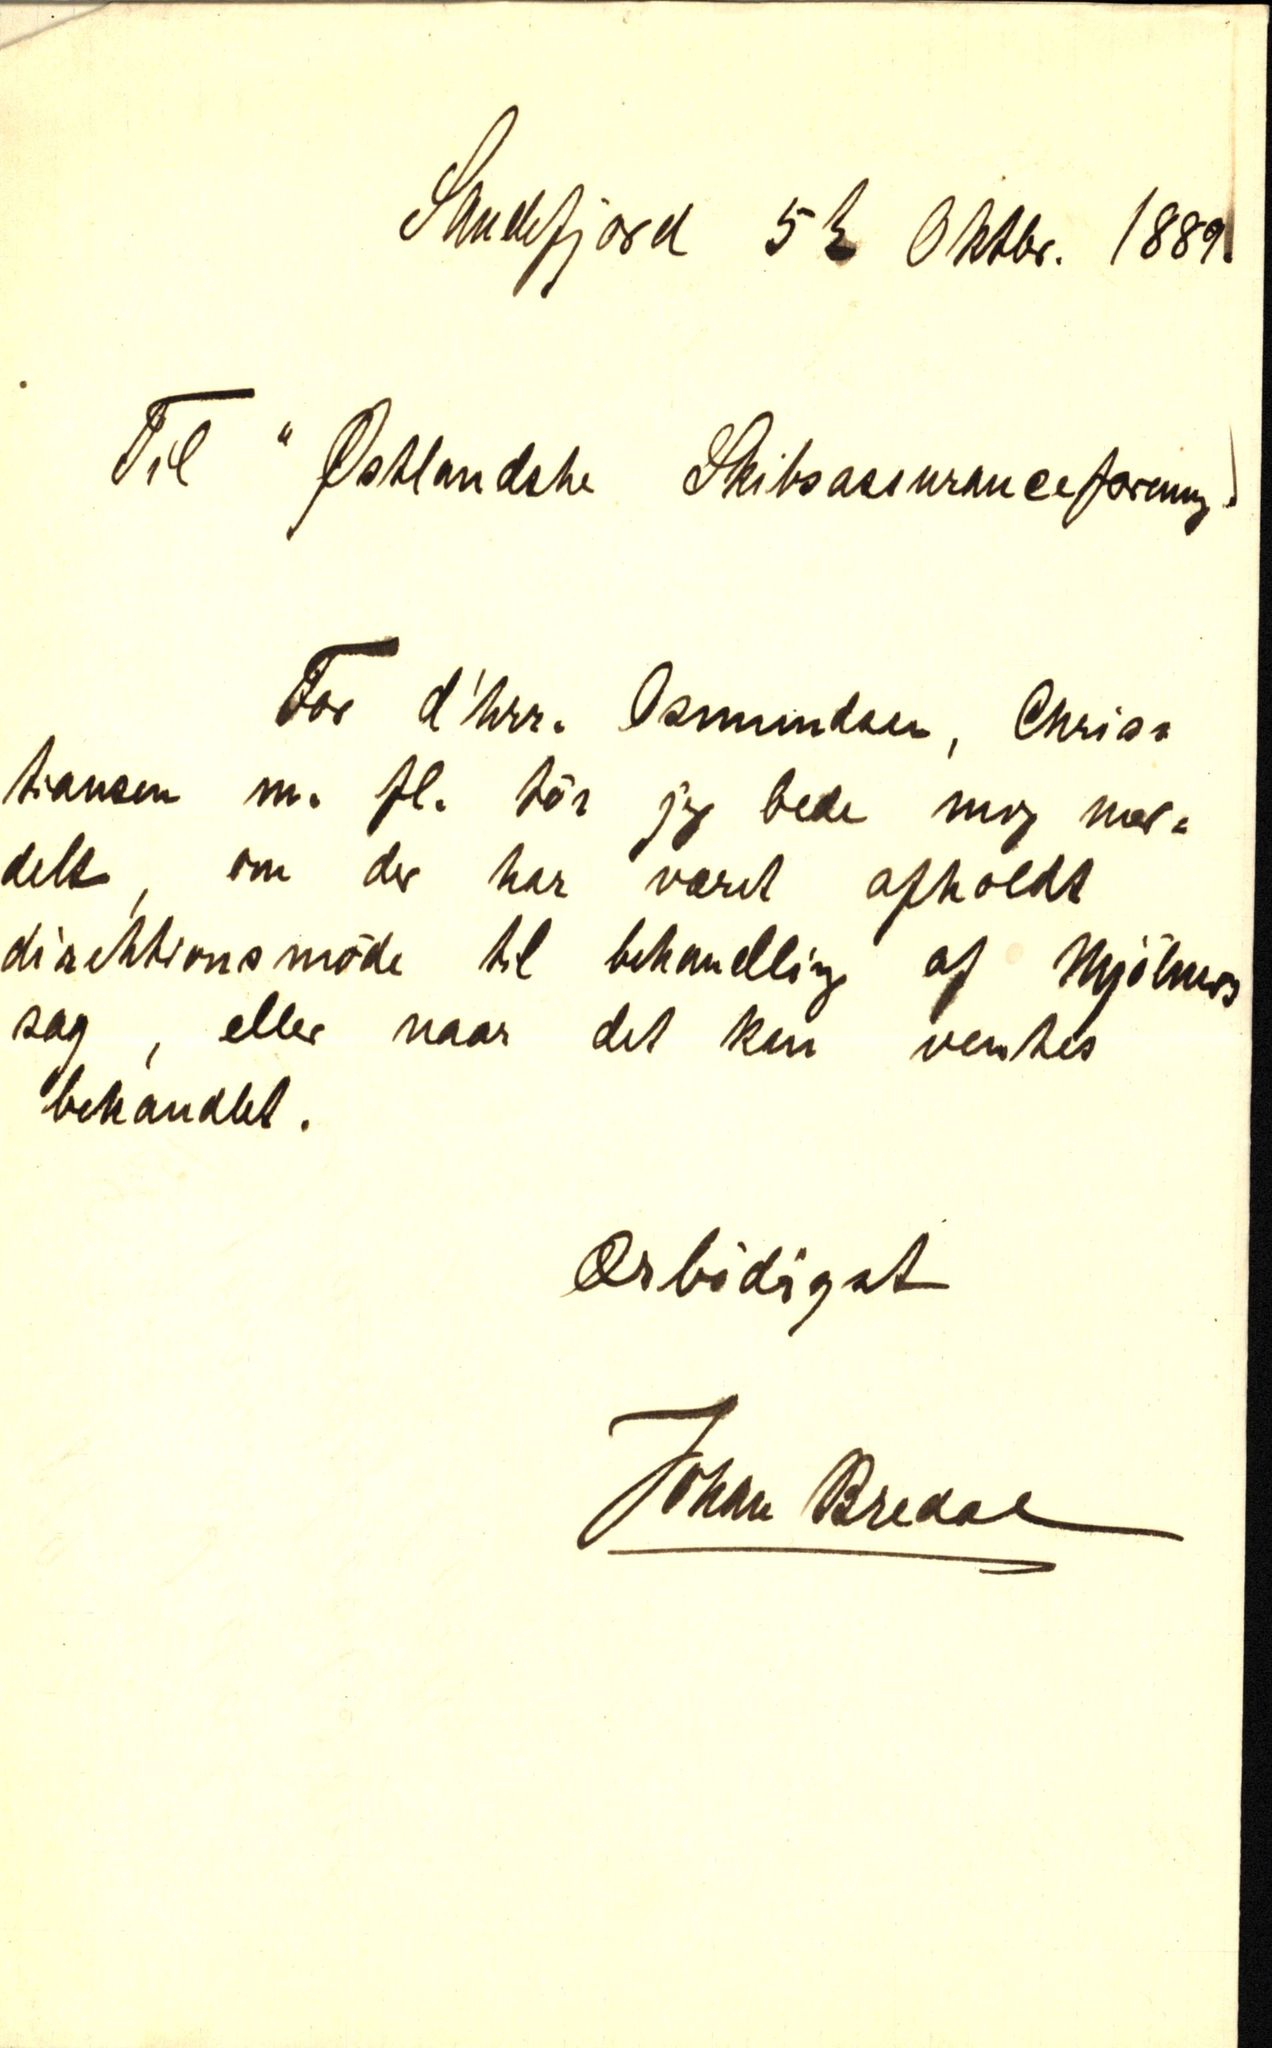 Sandefjord 5te Oktbr. 1889.
Til "Østlandske Skibsassuranceforening"
For d'hrr. Osmundsen, Chris=
tiansen m. fl. tör jeg bede mig med=
delt, om der har været afholdt
direktionsmöde til behandling af Mjölners
sag, eller naar det kan ventes
behandlet.
Ærbödigst
Johan Bredal